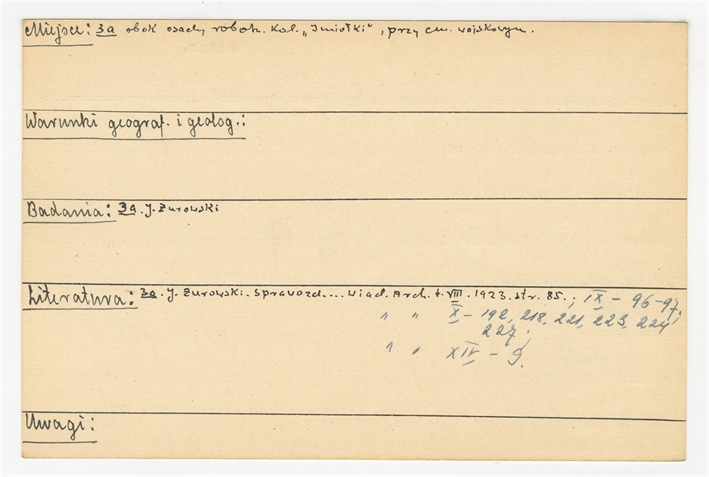 Miejsce: 3a obok osady robotn. Kol. „Imiołki", przy cm. wojskowym.
Warunki geograf. i geolog.:
Badania: 3a. J. Żurowski
Literatura: 3a. J. Żurowski. Sprawozd... Wiad. Arch. t. VIII. 1923. str. 85.; IX – 96-97;
" " X – 192, 218, 221, 223, 224,
227;
" " XIV – 9.
Uwagi: